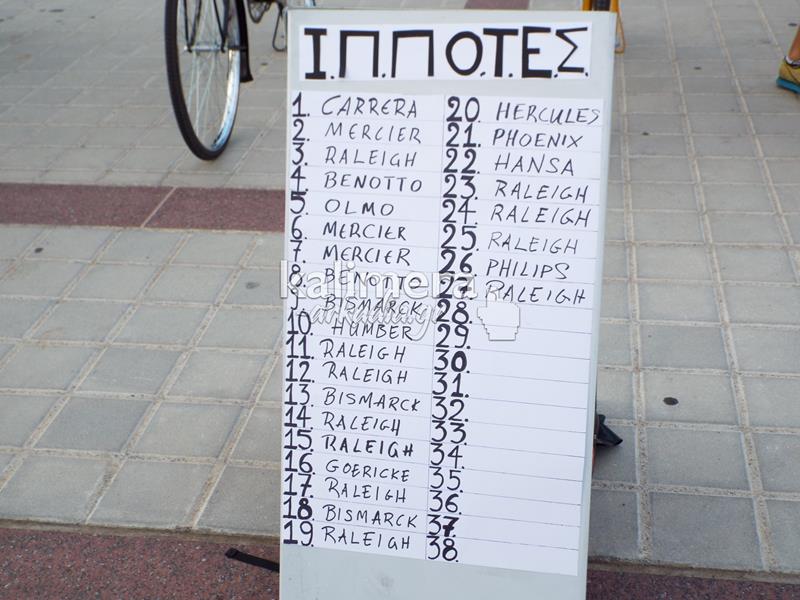 Ι.Π.ΠΟ.Τ.Ε.Σ.
1. CARRERA
2. MERCIER
3. RALEIGH
4. BENOTTO
5. OLMO
6. MERCIER
7. MERCIER
8. BENOTTO
9. BISMARCK
10. HUMBER
11. RALEIGH
12. RALEIGH
13. BISMARCK
14. RALEIGH
15. RALEIGH
16. GOERICKE
17. RALEIGH
18. BISMARCK
19. RALEIGH
20. HERCULES
21. PHOENIX
22. HANSA
23. RALEIGH
24. RALEIGH
25. RALEIGH
26. PHILIPS
27. RALEIGH
28.
29.
30.
31.
32.
33.
34.
35.
36.
37.
38.
kalimera
arkadia.gr